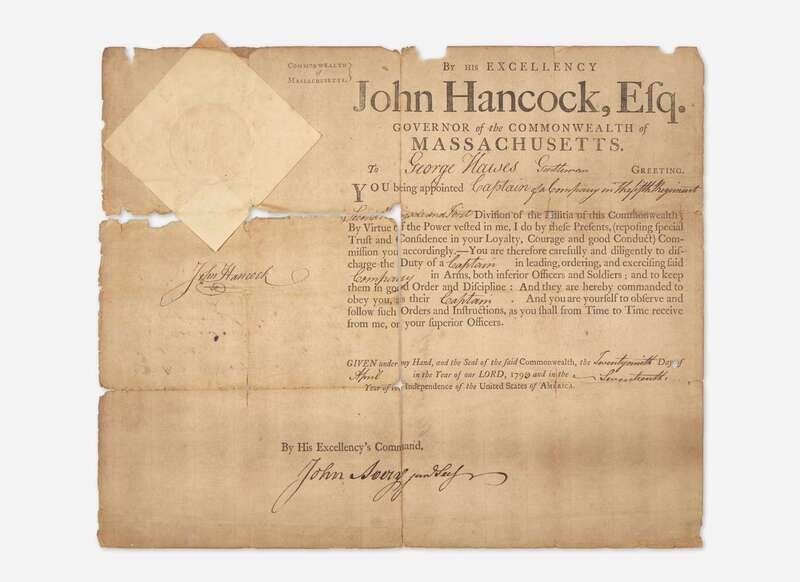 COMMONWEALTH
of
MASSACHUSETTS.
BY HIS EXCELLENCY
John Hancock, Eſq.
GOVERNOR of the COMMONWEALTH of
MASSACHUSETTS.
To George Hawes Gentleman GREETING.
YOU being appointed Captain of a Company in the fifth Regiment
Second Brigade and First Diviſion of the Militia of this Commonwealth;
By Virtue of the Power veſted in me, I do by theſe Preſents, (repoſing ſpecial
Truſt and Confidence in your Loyalty, Courage and good Conduct) Com-
miſſion you accordingly.—You are therefore carefully and diligently to diſ-
charge the Duty of a Captain in leading, ordering, and exerciſing ſaid
Company in Arms, both inferior Officers and Soldiers; and to keep
them in good Order and Diſcipline: And they are hereby commanded to
obey you, as their Captain. And you are yourſelf to obſerve and
follow ſuch Orders and Inſtructions, as you ſhall from Time to Time receive
from me, or your ſuperior Officers.
John Hancock
GIVEN under my Hand, and the Seal of the ſaid Commonwealth, the Day of
April in the Year of our LORD, 179 and in the Seventeenth
Year of Independence of the United States of AMERICA.
By His Excellency's Command,
John Avery jun Secy